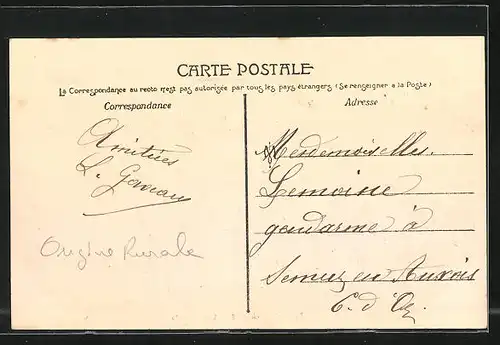 CARTE POSTALE
La Correspondance au recto n'est pas autorisée par tous les pays étrangers (Se renseigner à la Poste)
Correspondance
Adresse
Amitiées
L.
Mesdemoiselles.
Lemoine
gendarme à
Semur en Auxois
C. d'Or
Origine Rurale